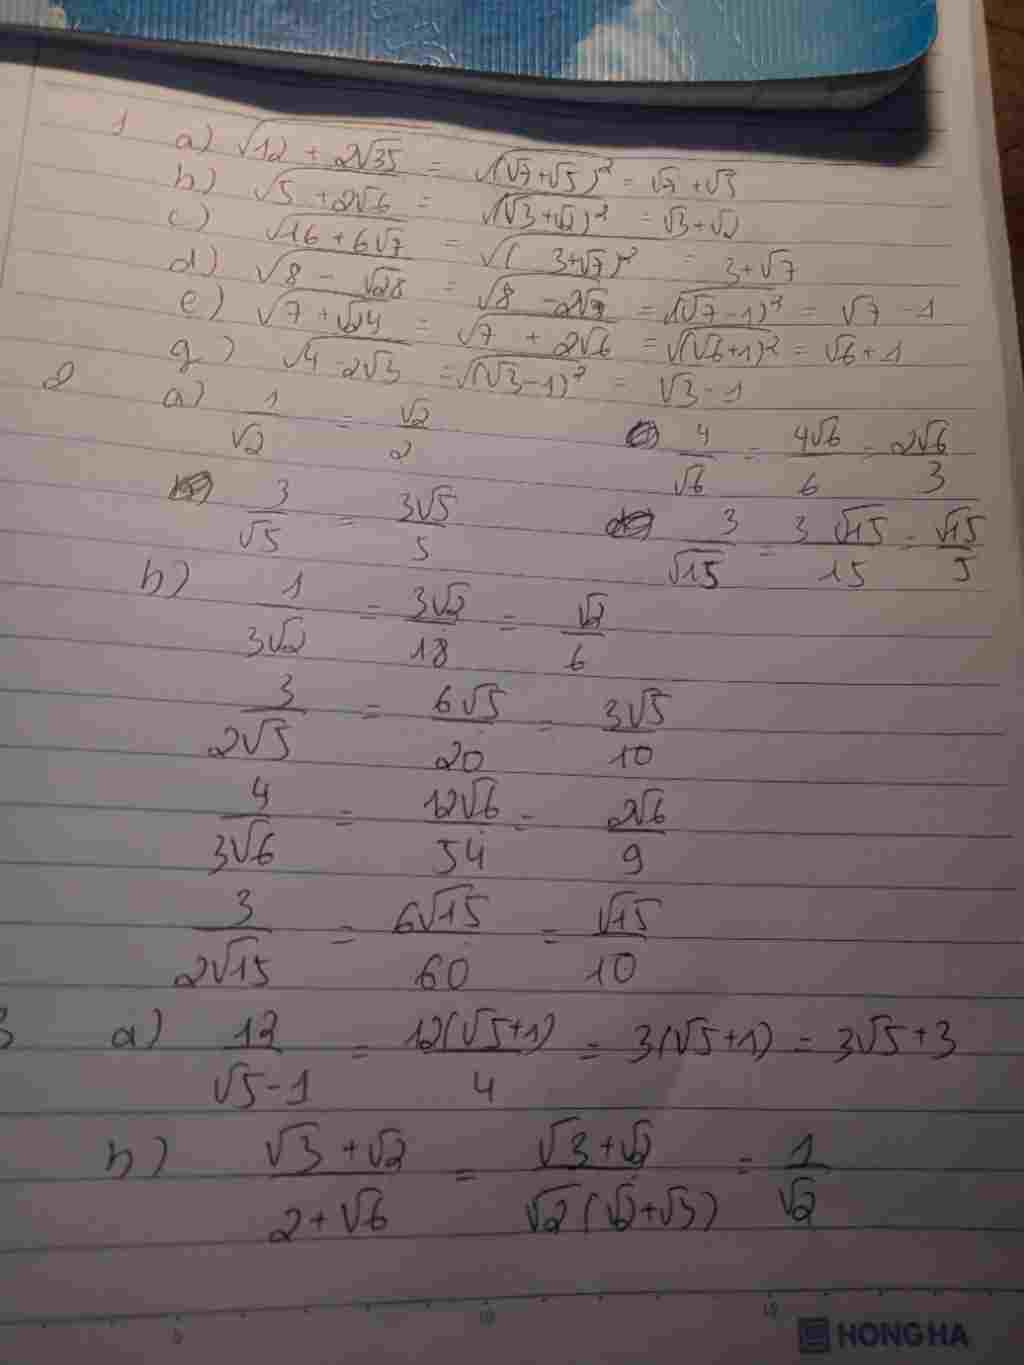 1 a) √(12 + 2√35) = √((√7+√5)²) = √7 + √5
b) √(5 + 2√6) = √((√3+√2)²) = √3 + √2
c) √(16 + 6√7) = √((3+√7)²) = 3 + √7
d) √(8 - √28) = √(8 - 2√7) = √((√7-1)²) = √7 - 1
e) √(7 + √24) = √(7 + 2√6) = √((√6+1)²) = √6 + 1
g) √(4 - 2√3) = √((√3-1)²) = √3 - 1
2 a) 1/√2 = √2/2 4/√6 = 4√6/6 = 2√6/3
3/√5 = 3√5/5 3/√15 = 3√15/15 = √15/5
b) 1/(3√2) = 3√2/18 = √2/6
3/(2√5) = 6√5/20 = 3√5/10
4/(3√6) = 12√6/54 = 2√6/9
3/(2√15) = 6√15/60 = √15/10
3 a) 12/(√5-1) = 12(√5+1)/4 = 3(√5+1) = 3√5+3
b) (√3+√2)/(2+√6) = (√3+√2)/(√2(√2+√3)) = 1/√2
5 10 15
HONG HA